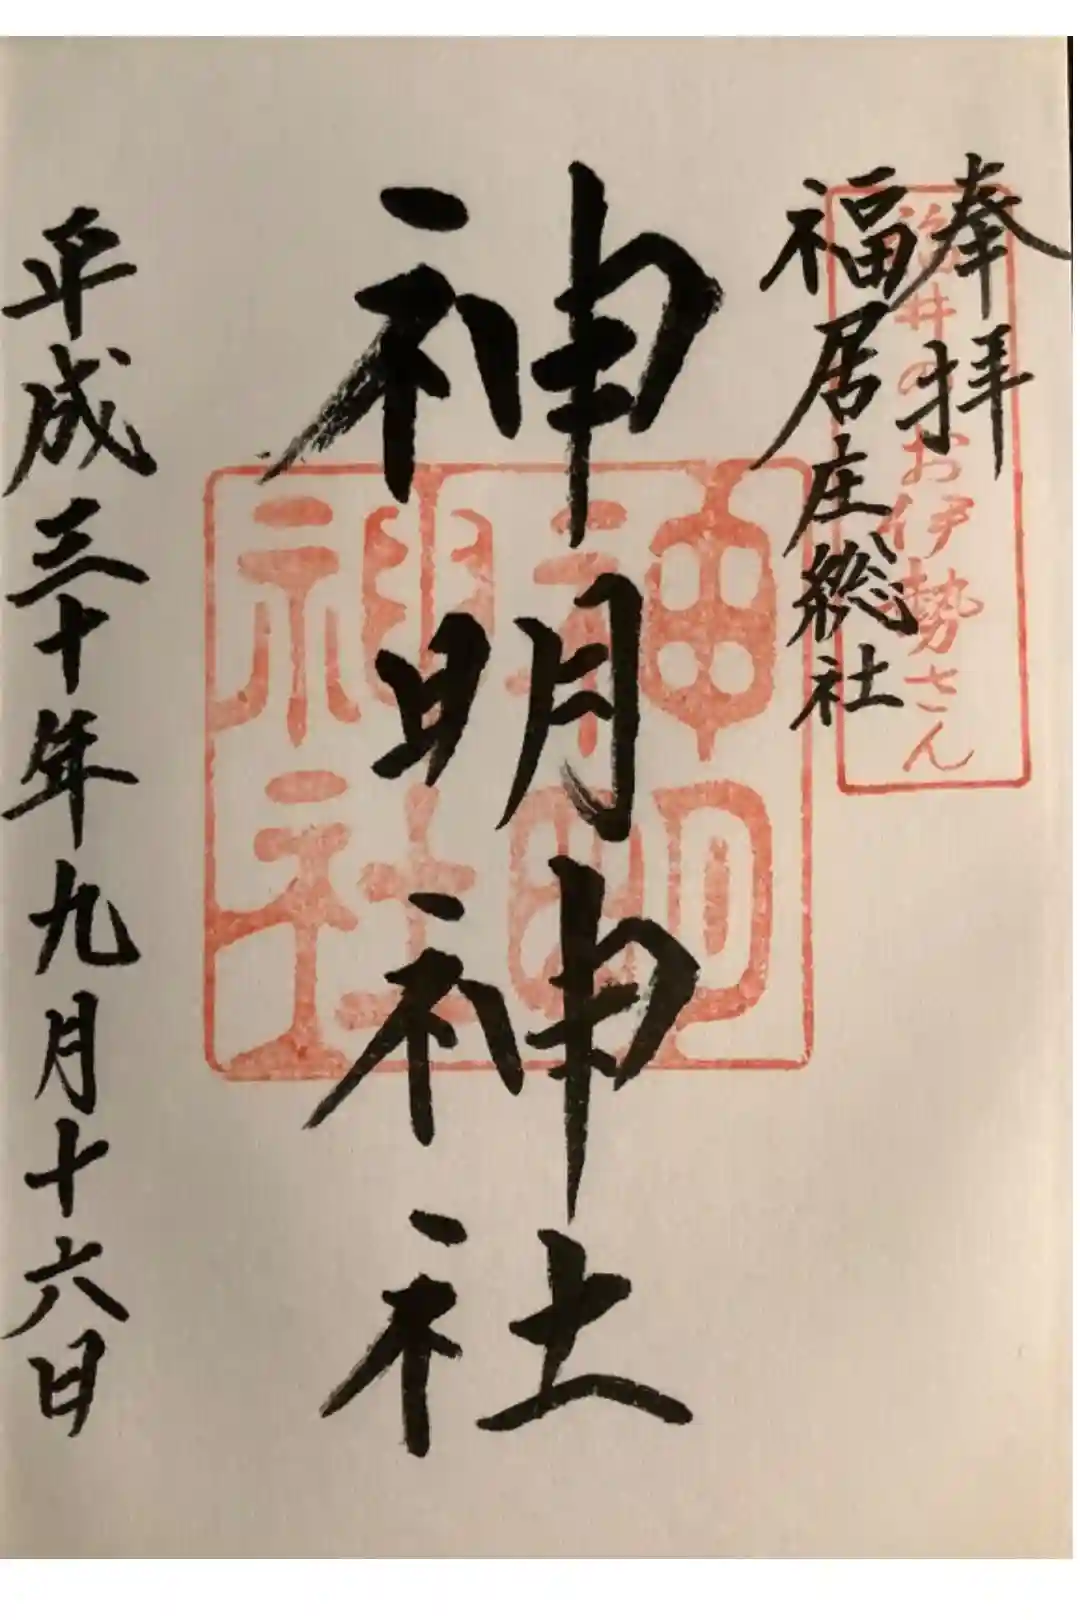 奉拝
福井のお伊勢さん
福居庄総社
神明神社
神明
神社
平成三十年九月十六日